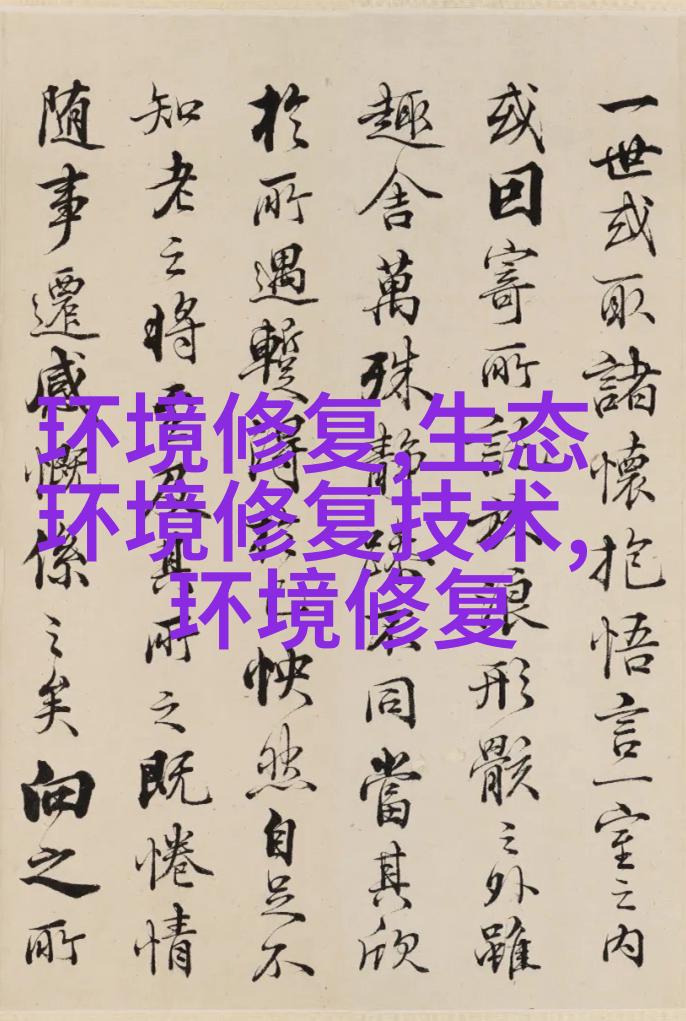 一世或取諸懷抱悟言一室之內
或因寄所託放浪形骸之外雖
趣舍萬殊靜躁不同當其欣
於所遇蹔得於己怏然自足不
知老之將至及其所之既惓情
隨事遷感慨係之矣向之所
环境修复,生态
环境修复技术,
环境修复